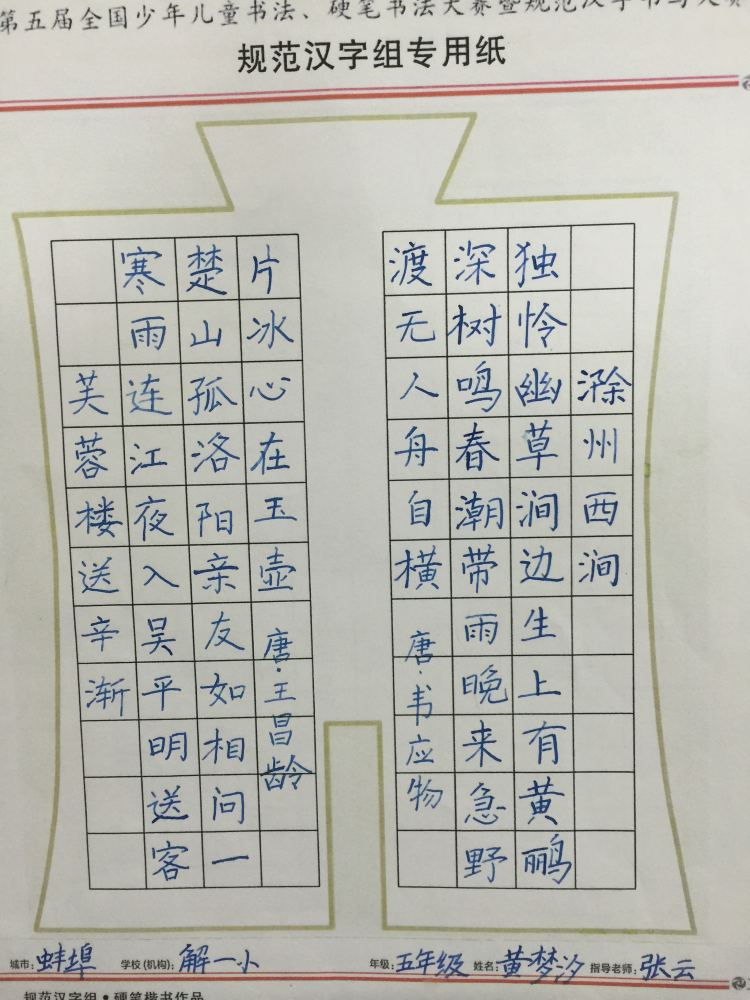 第五届全国少年儿童书法、硬笔书法大赛暨规范汉字书写大赛
规范汉字组专用纸
滁州西涧
独怜幽草涧边生上有黄鹂
深树鸣春潮带雨晚来急野
渡无人舟自横 唐·韦应物
芙蓉楼送辛渐
寒雨连江夜入吴平明送客
楚山孤洛阳亲友如相问一
片冰心在玉壶 唐·王昌龄
城市:蚌埠 学校(机构):解一小 年级:五年级 姓名:黄梦汐 指导老师:张云
规范汉字组·硬笔楷书作品